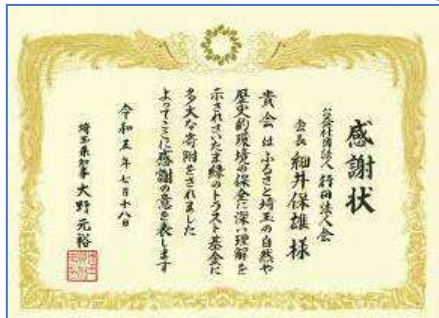 感謝状
公益社団法人 行田法人会
会長 細井保雄 様
貴会はふるさと埼玉の自然や
歴史的環境の保全に深い理解を
示されさいたま緑のトラスト基金に
多大な寄附をされました
よってここに感謝の意を表します
令和五年七月十八日
埼玉県知事 大野元裕